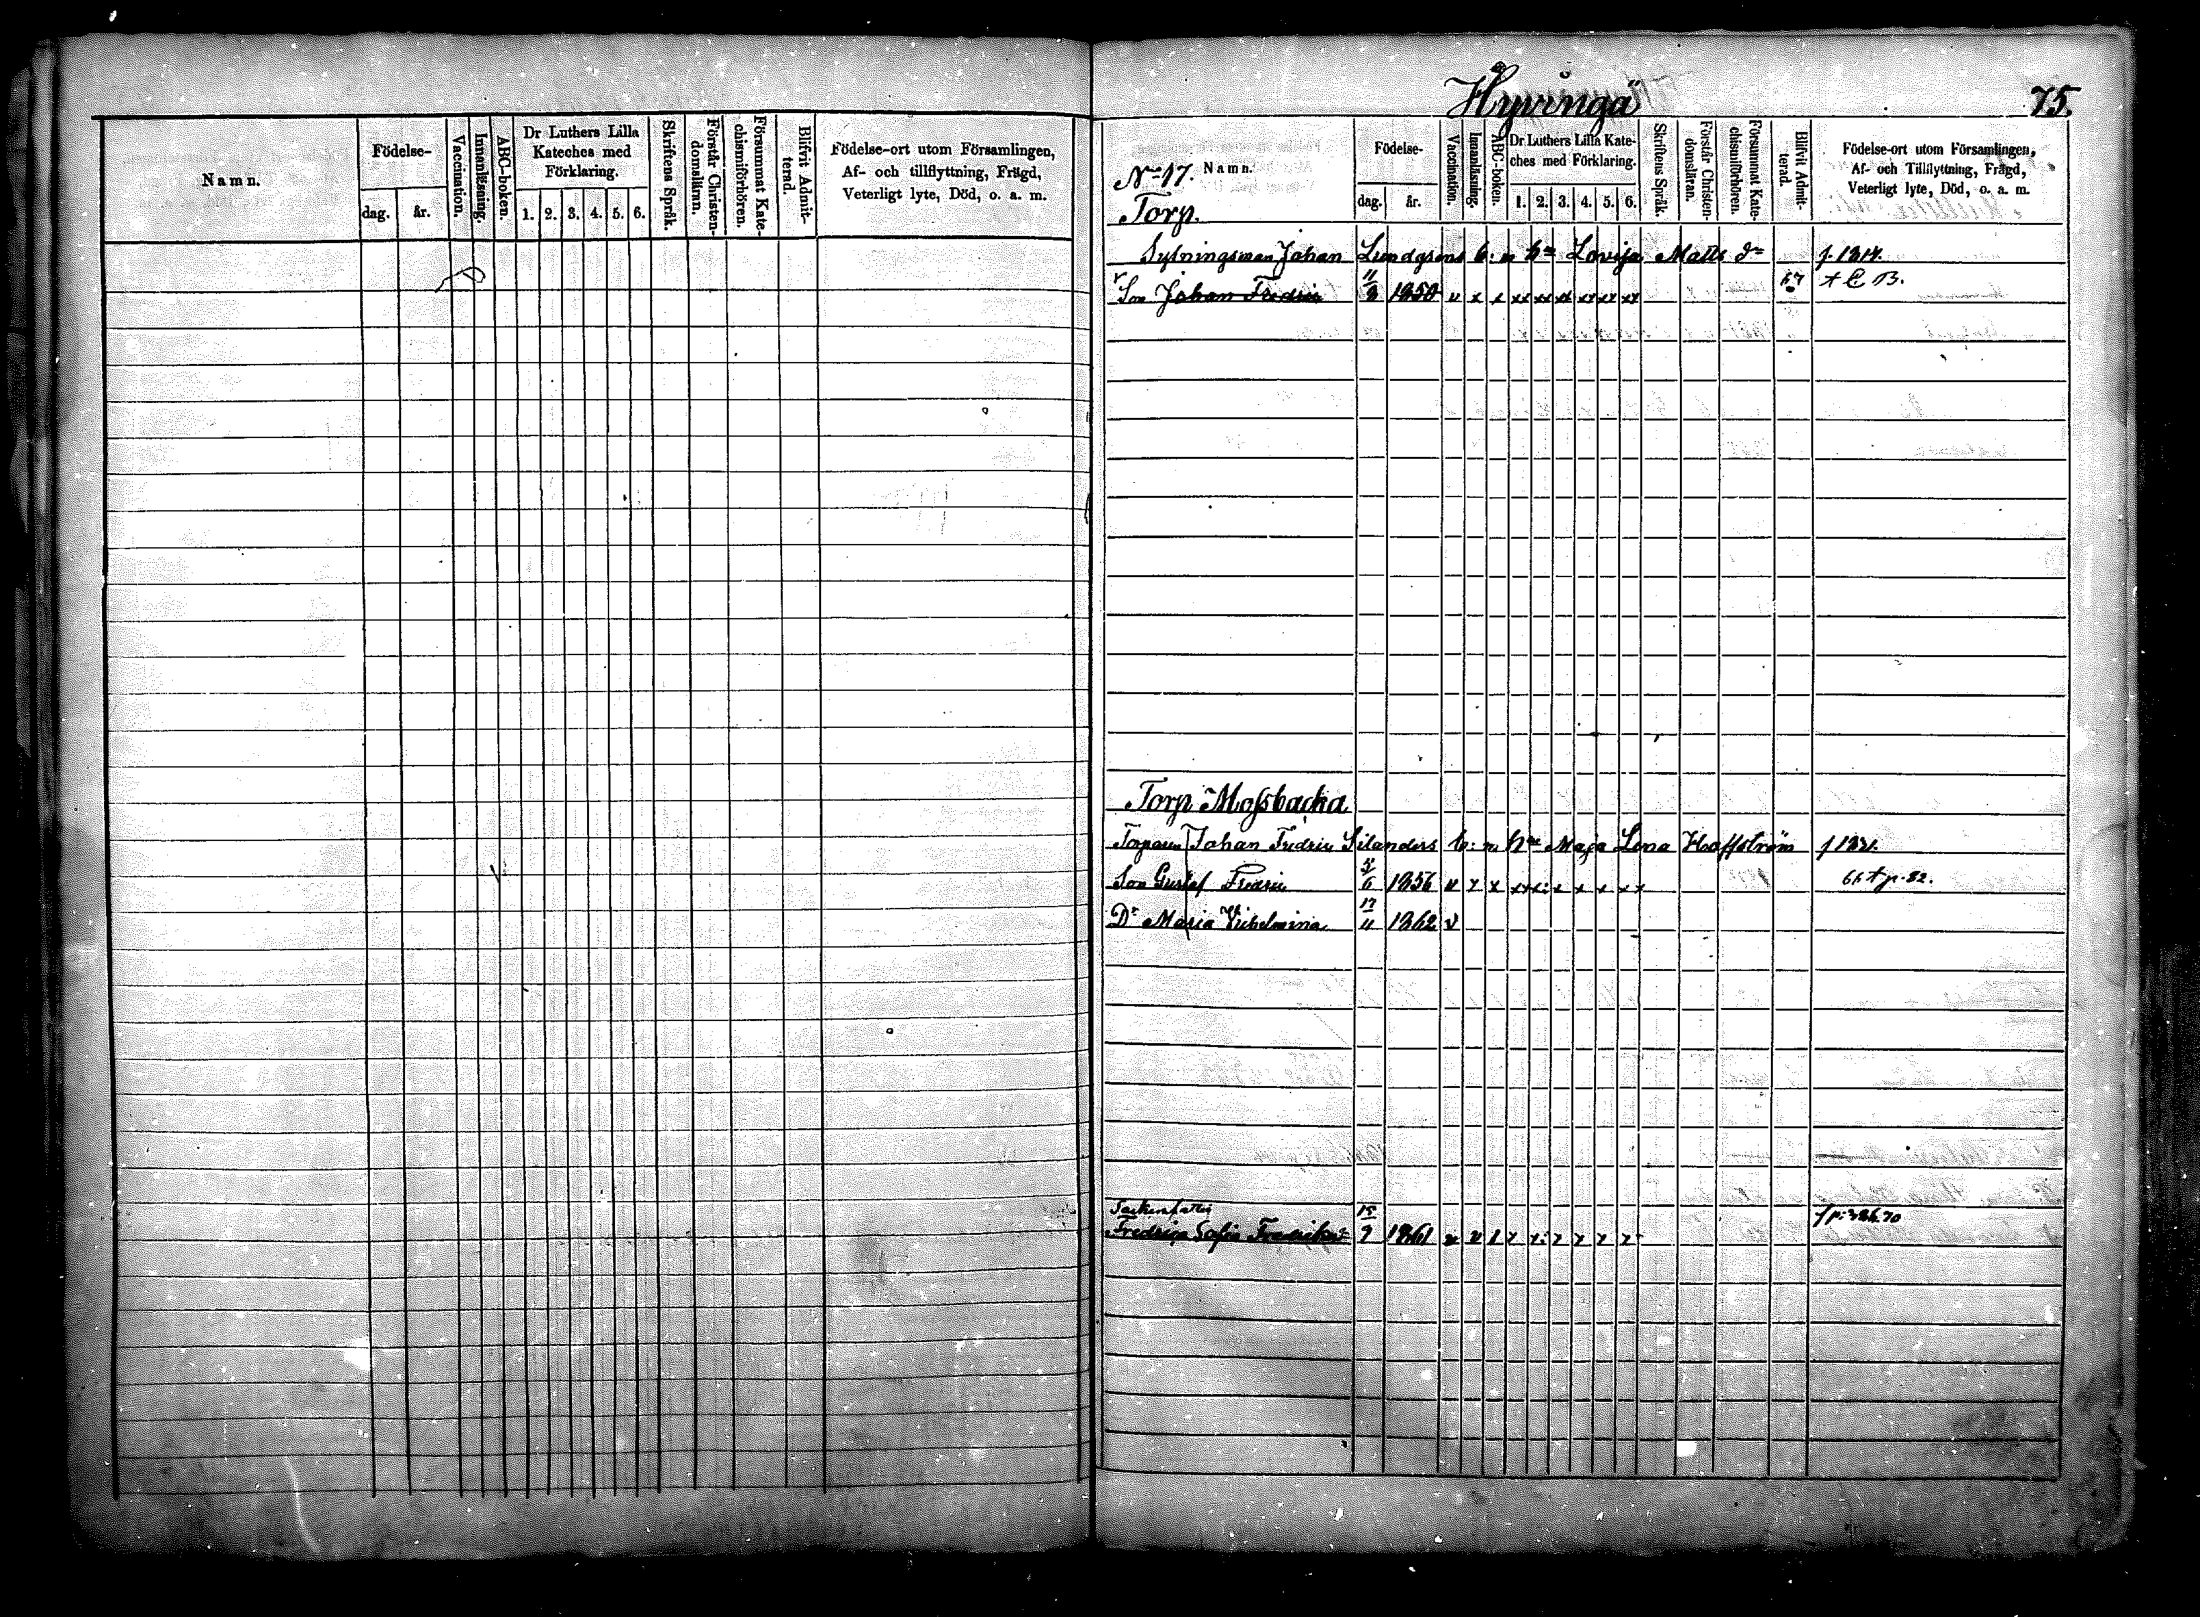 Namn.
Födelse-
dag.
år.
Vaccination.
Innanläsning.
ABC-boken.
Dr Luthers Lilla
Kateches med
Förklaring.
1. 2. 3. 4. 5. 6.
Skriftens Språk.
Förstår Christen-
domslärann.
Försummat Kate-
chismiförhören.
Blifvit Admit-
terad.
Födelse-ort utom Församlingen,
Af- och tillflyttning, Frägd,
Veterligt lyte, Död, o. a. m.
Hyvinga
75.
No 17. Namn.
Torp.
Födelse-
dag.
år.
Vaccination.
Innanläsning.
ABC-boken.
Dr Luthers Lilla Kate-
ches med Förklaring.
1. 2. 3. 4. 5. 6.
Skriftens Språk.
Förstår Christen-
domsläran.
Försummat Kate-
chismiförhören.
Blifvit Admit-
terad.
Födelse-ort utom Församlingen,
Af- och Tillflyttning, Frägd,
Veterligt lyte, Död, o. a. m.
Sytningsman Johan Lundgrens b. n. hu Lovisa Matts dr f. 1814.
Son Johan Fredric 11/3 1850 v x x xx xx xx xx xx xx 67 + C B.
Torp Mossbacka
Torparen Johan Fredric Silanders b: n. hu Maja Lena Hoffström f 1831.
Son Gustaf Fredric 1856 v x x
Dr Maria Vilhelmina 17/11 1862 v
Fredrica Sofia Fredriksdr 15/9 1861